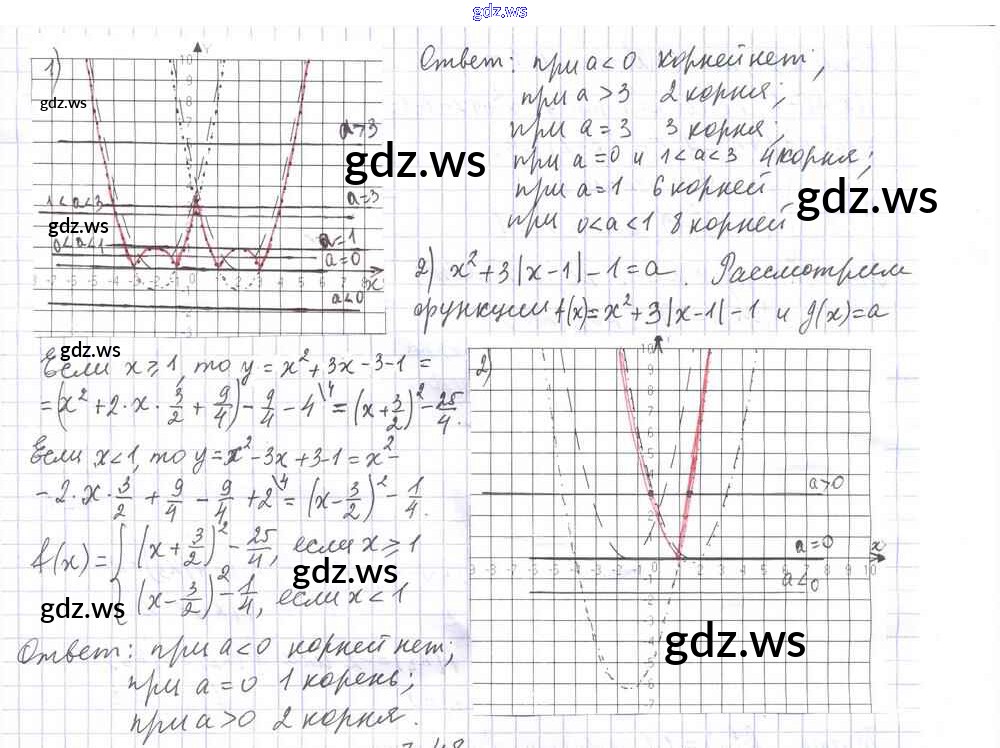 gdz.ws
1)
gdz.ws
a>3
gdz.ws
a=3
1<a<3
gdz.ws
0<a<1
a=1
a=0
a<0
Ответ: при a<0 корней нет;
при a>3 2 корня;
при a=3 3 корня;
при a=0 и 1<a<3 4 корня;
при a=1 6 корней
gdz.ws
при 0<a<1 8 корней
2) x²+3|x-1|-1=a. Рассмотрим
функции f(x)=x²+3|x-1|-1 и g(x)=a
gdz.ws
Если x⩾1, то y=x²+3x-3-1=
=(x²+2·x·3/2+9/4)-9/4-4\4=(x+3/2)²-25/4.
Если x<1, то y=x²-3x+3-1=x²-
-2·x·3/2+9/4-9/4+2\4=(x-3/2)²-1/4.
f(x)={(x+3/2)²-25/4, если x⩾1
gdz.ws
(x-3/2)²-1/4, если x<1
gdz.ws
Ответ: при a<0 корней нет;
при a=0 1 корень;
при a>0 2 корня.
2)
a>0
a=0
x
a<0
gdz.ws